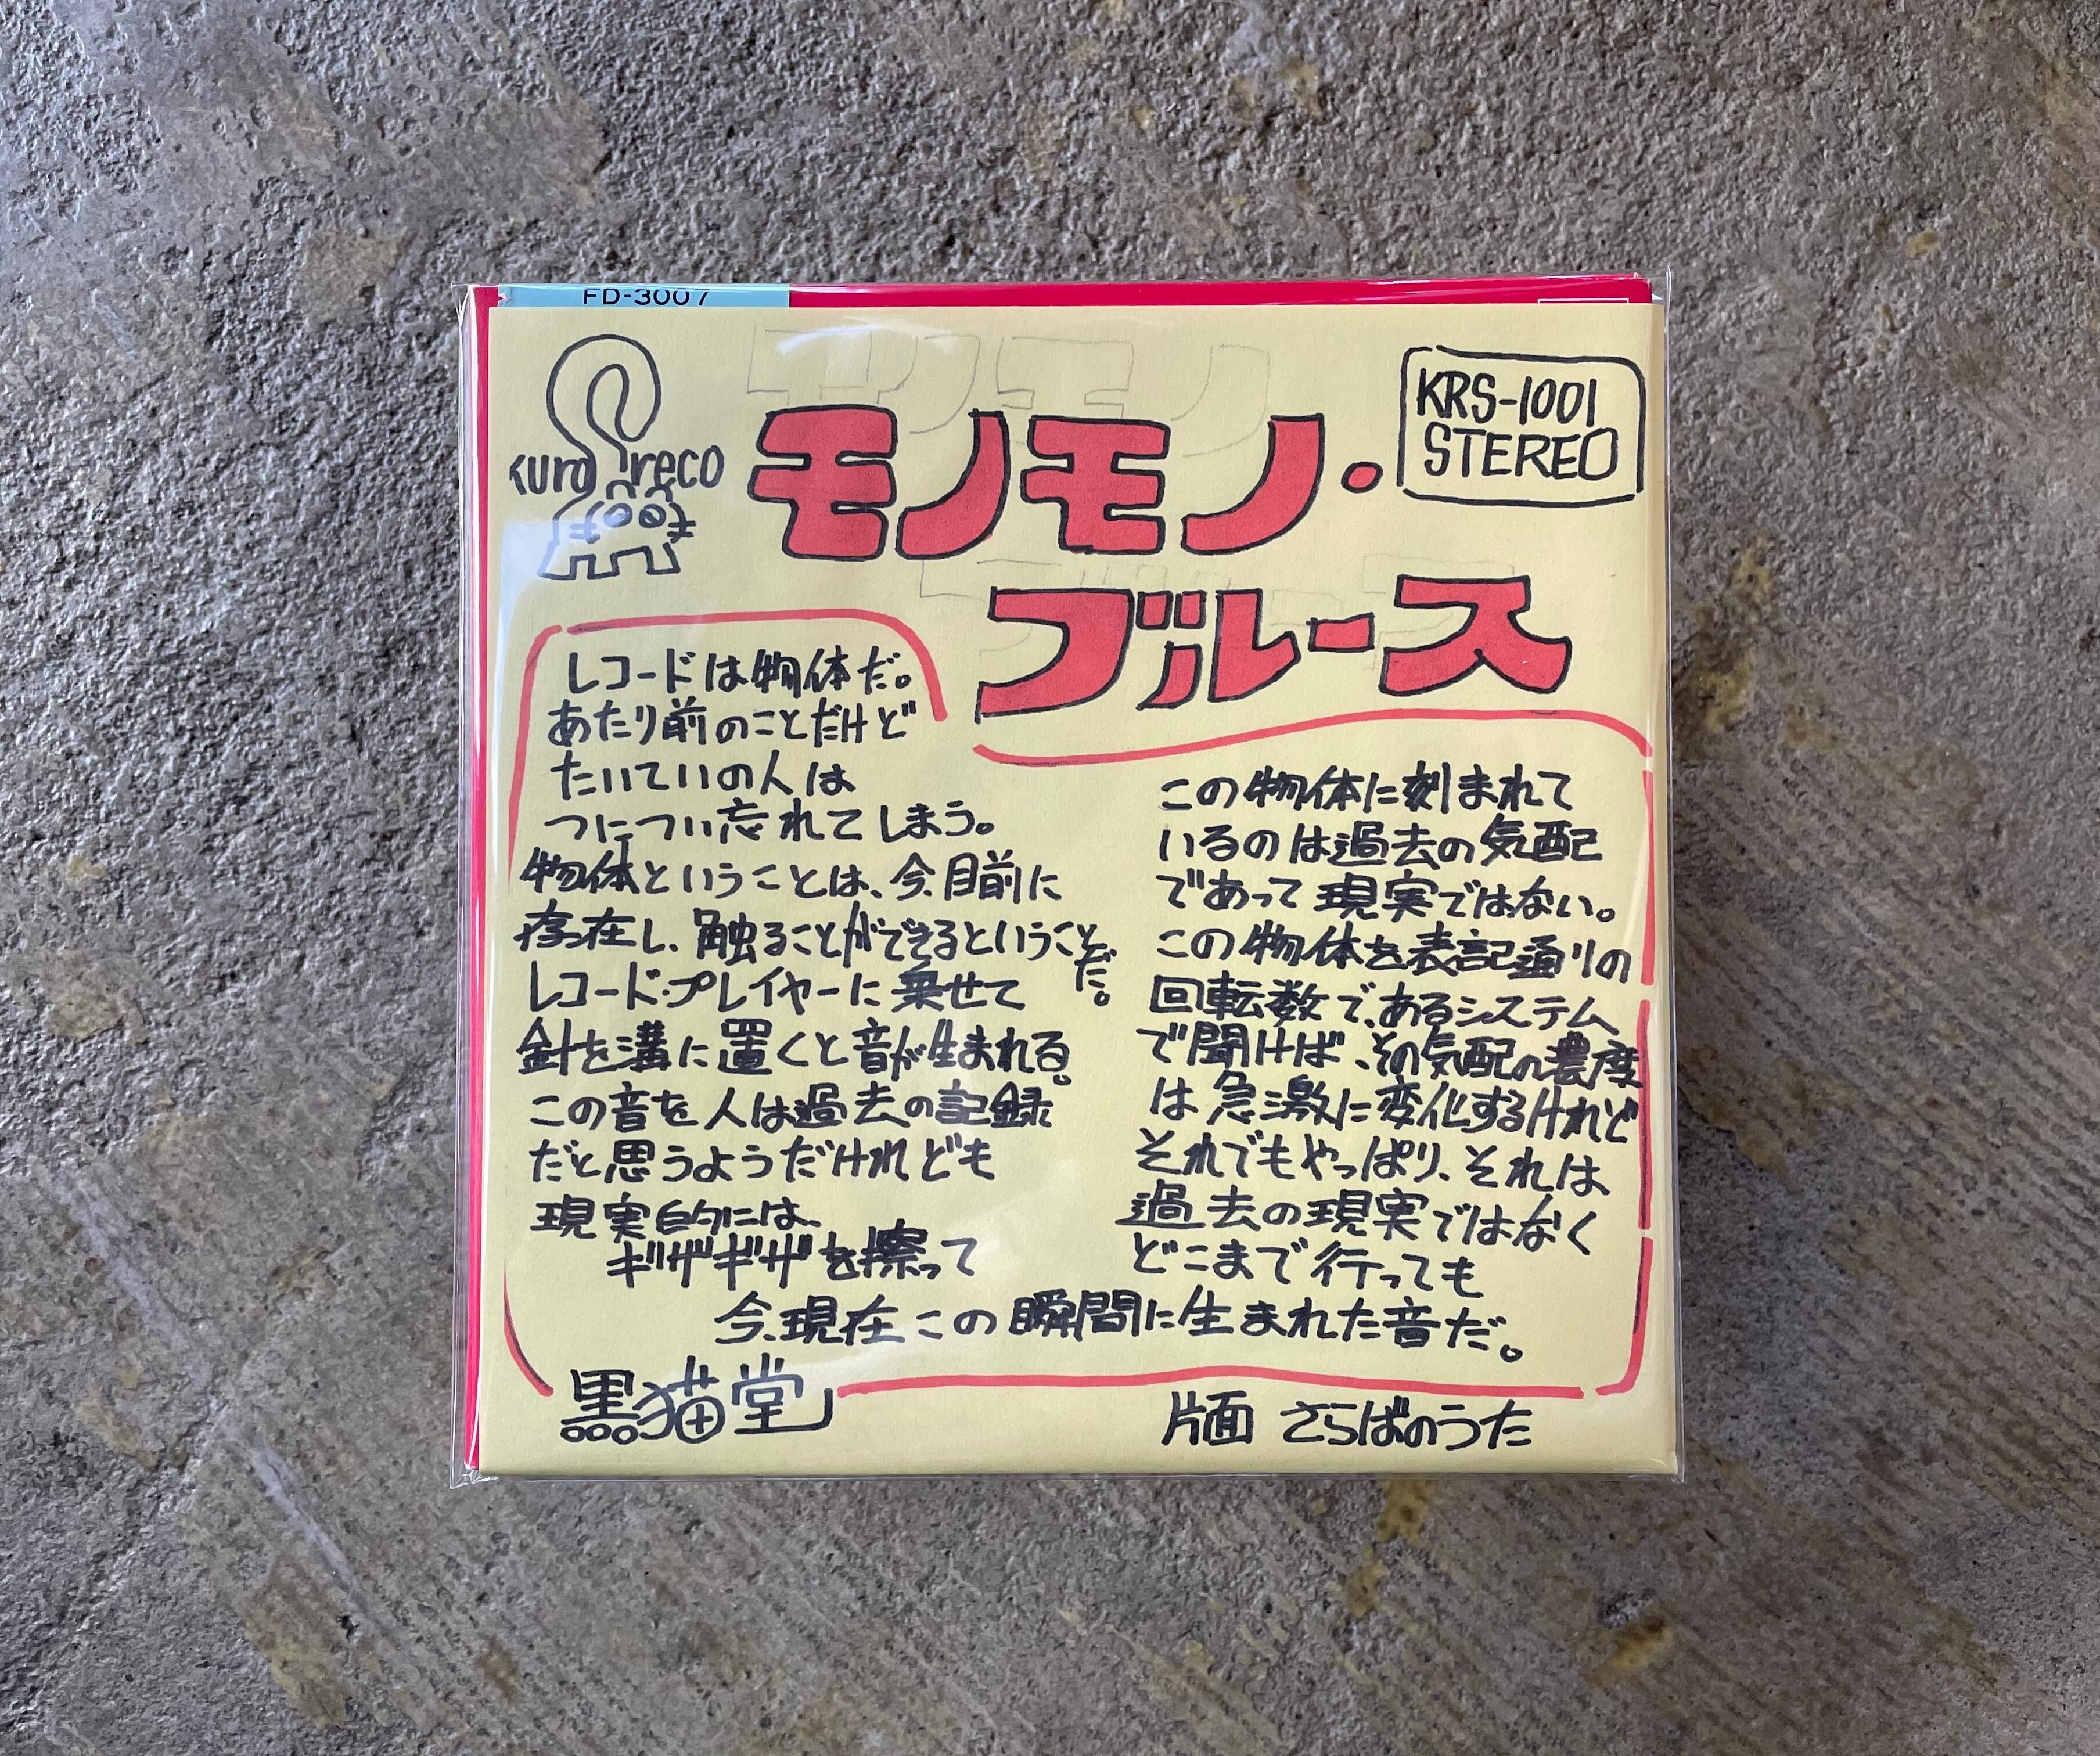 FD-3007
kuro reco
モノモノ・
ブルース
KRS-1001
STEREO
レコードは物体だ。
あたり前のことだけど
たいていの人は
ついつい忘れてしまう。
物体ということは、今、目前に
存在し、触ることができるということだ。
レコード・プレイヤーに乗せて
針を溝に置くと音が生まれる。
この音を人は過去の記録
だと思うようだけれども
現実的には、
ギザギザを擦って
今、現在この瞬間に生まれた音だ。
この物体に刻まれて
いるのは過去の気配
であって現実ではない。
この物体を表記通りの
回転数で、あるシステム
で聞けば、その気配の濃度
は急激に変化するけれど
それでもやっぱり、それは
過去の現実ではなく
どこまで行っても
黒猫堂
片面 さらばのうた